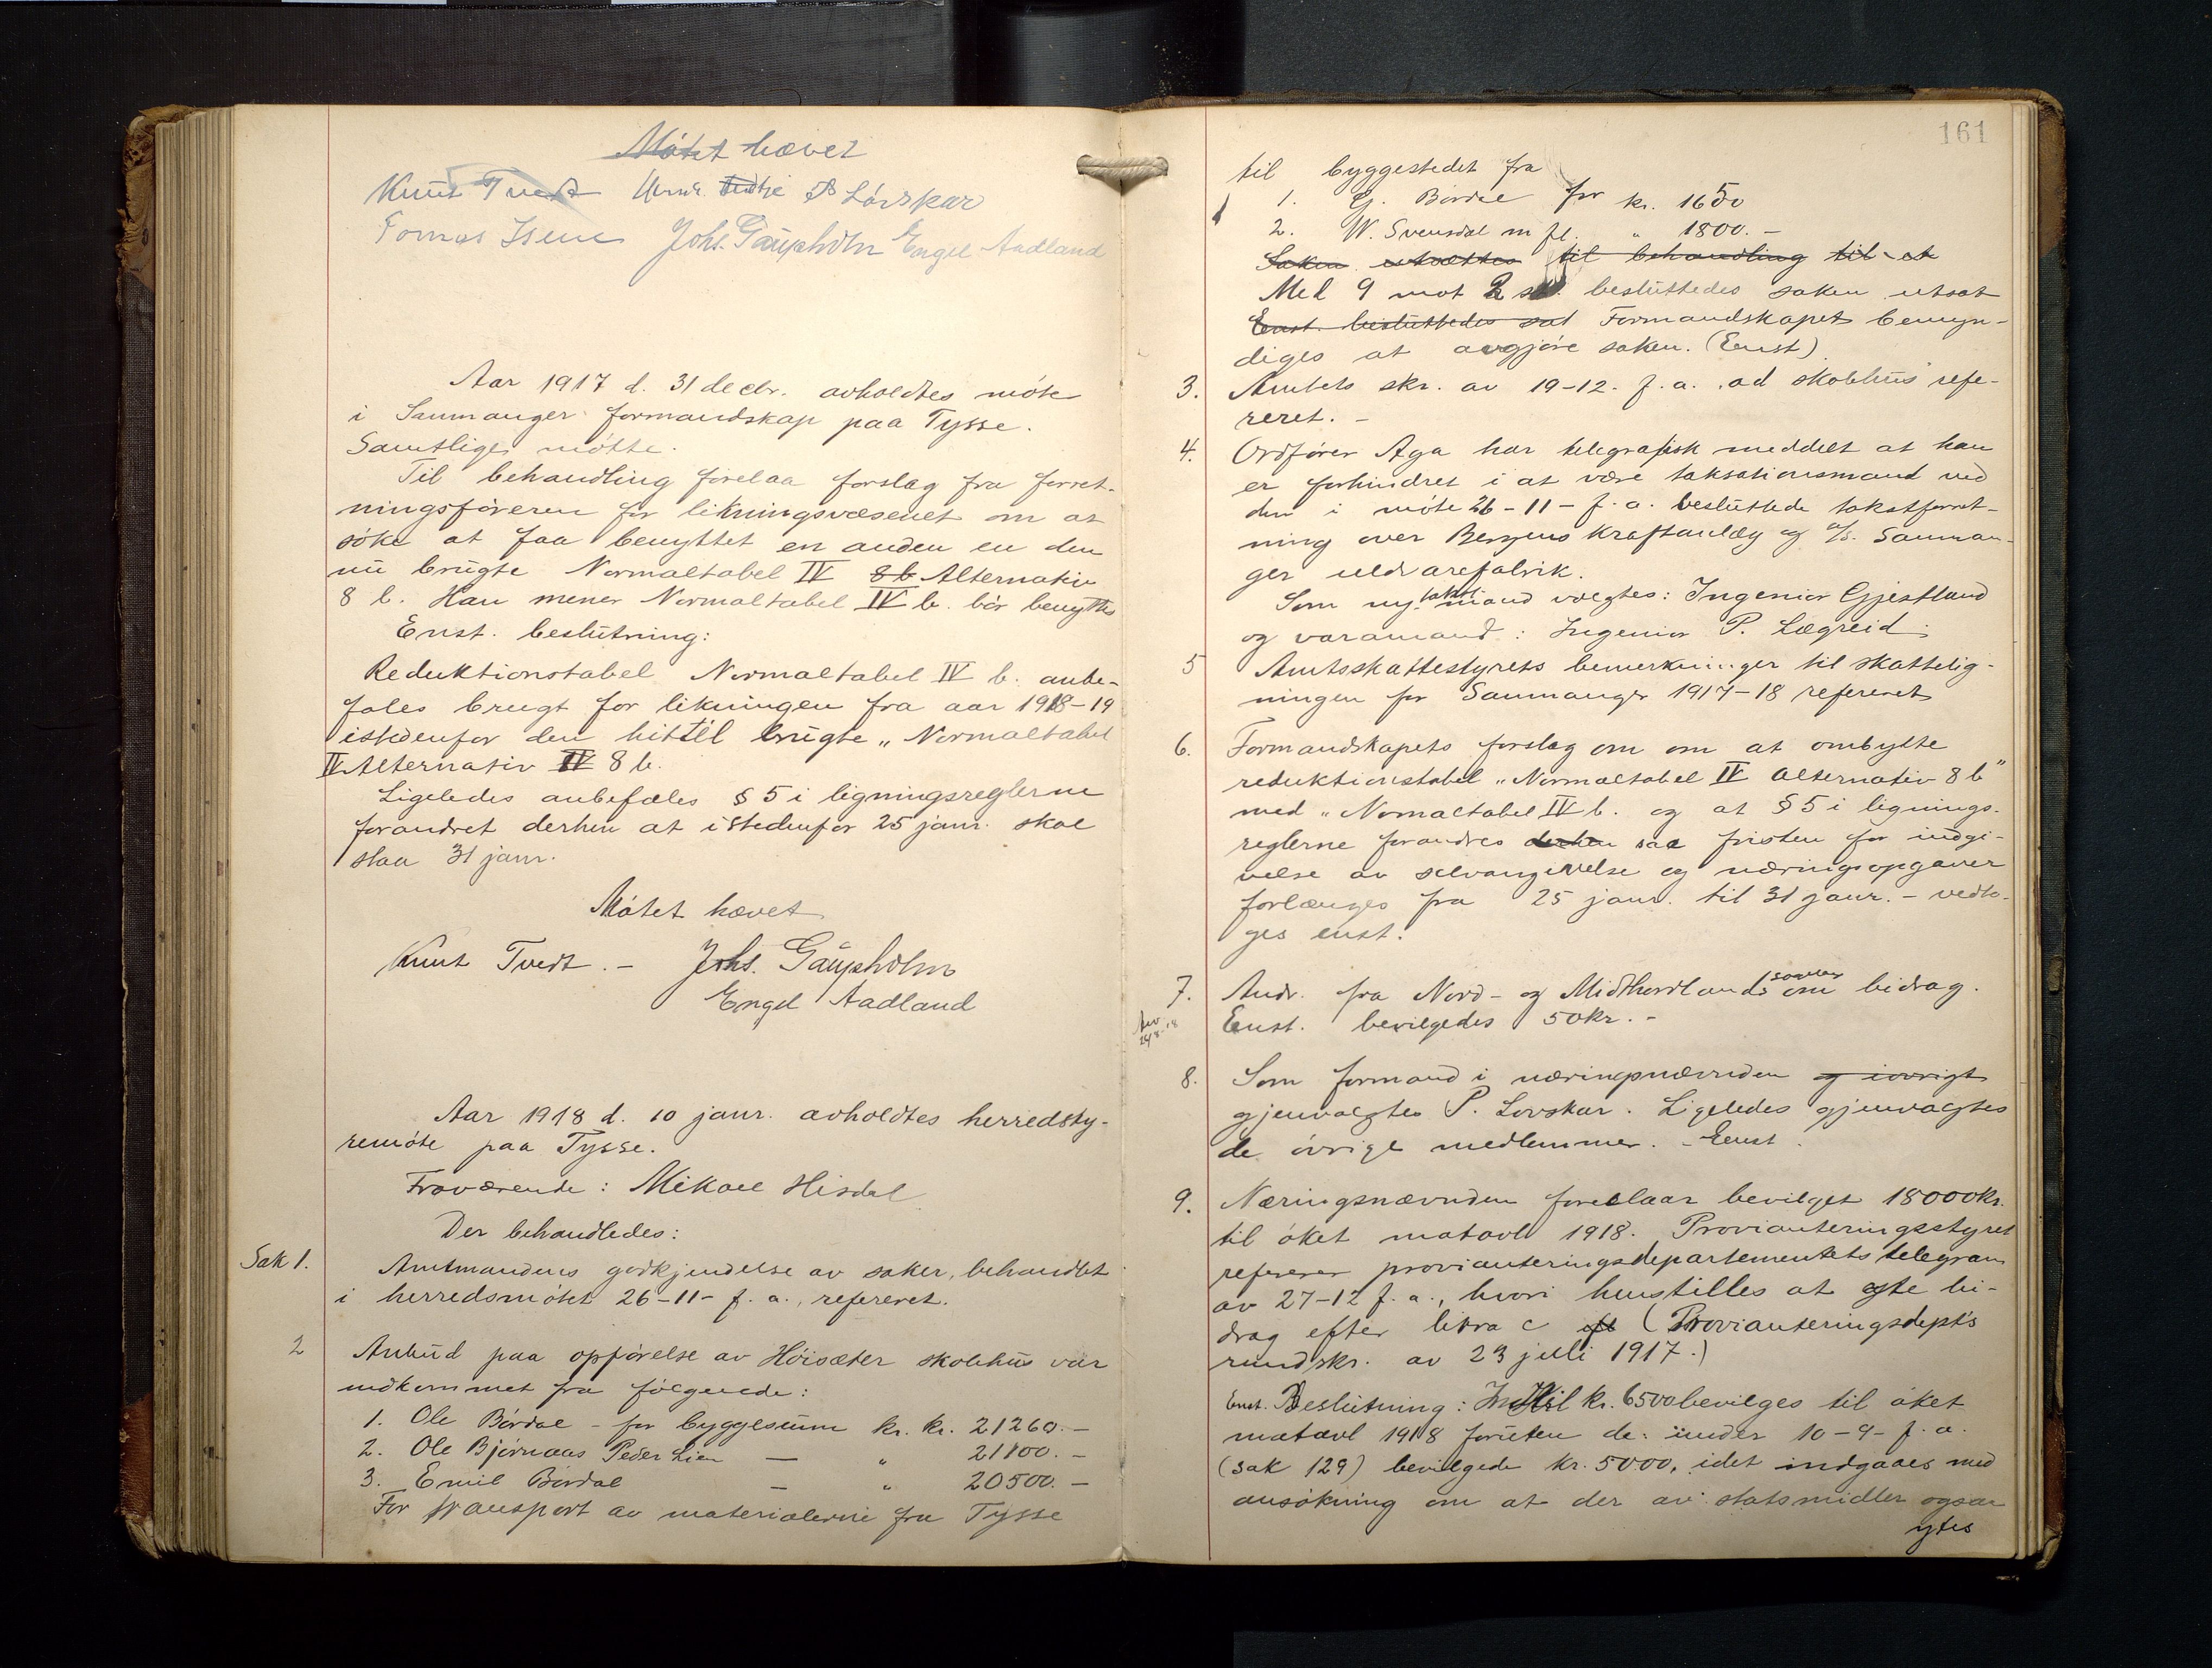 Møtet hævet
Knut Tvedt Tvedtje P Løvskar
Tomas Isene Johs. Gaupholm Engel Aadland
Aar 1917 d. 31 decbr. avholdtes møte
i Samnanger formandskap paa Tysse.
Samtlige møtte.
Til behandling forelaa forslag fra forret-
ningsføreren for likningsvæsenet om at
søke at faa benyttet en anden en den
nu brugte Normaltabel IV 8 b Alternativ
8 b. Han mener Normaltabel IV b. bør benyttes
Enst. beslutning:
Reduktionstabel Normaltabel IV b. anbe-
fales brugt for likningen fra aar 1918-19
istedenfor den hittil brugte „Normaltabel
IV Alternativ IV 8 b.
Ligeledes anbefales § 5 i ligningsreglerne
forandret derhen at istedenfor 25 janr. skal
staa 31 janr.
Møtet hævet
Knut Tvedt. - Johs. Gaupholm
Engel Aadland
Aar 1918 d. 10 janr. avholdtes herredsty-
remøte paa Tysse.
Fraværende: Mikael Hisdal
Der behandledes:
Sak 1. Amtmandens godkjendelse av saker, behandlet
i herredsmøtet 26-11- f. a., refereret.
2 Anbud paa opførelse av Høisæter skolehus var
indkommet fra følgende:
1. Ole Børdal - for byggesum kr. kr. 21260.-
2. Ole Bjørnaas Peder Lien — „ 21100.-
3. Emil Børdal — „ 20500.-
For transport av materialerne fra Tysse
161
til byggestedet fra
1. G. Børdal for kr. 1650
2. W. Svensdal m fl. „ 1800.-
Saken utsættes til behandling til et
Med 9 mot 2 st. besluttedes saken utsat
Enst. besluttedes sat Formandskapet bemyn-
diges at avgjøre saken. (Enst)
3. Amtets skr. av 19-12- f. a. ad skolehus refe-
reret. -
4. Ordfører Aga har telegrafisk meddelt at han
er forhindret i at være taksationsmand ved
den i møte 26-11- f. a. besluttede takstforret-
ning over Bergens kraftanlæg og A/S. Samnan-
ger uldvarefabrik.
Som ny takst mand valgtes: Ingeniør Gjestland
og varamand: Ingeniør P. Lægreid.
5 Amtsskattestyrets bemerkninger til skattelig-
ningen for Samnanger 1917-18 refereret
6. Formandskapets forslag om om at ombytte
reduktionstabel „Normaltabel IV Alternativ 8 b"
med „Normaltabel IV b. og at § 5 i lignings-
reglerne forandres derhen saa fristen for indgi-
velse av selvangivelse og næringsopgaver
forlænges fra 25 janr. til 31 janr. - vedto-
ges enst.
7. Andr. fra Nord- og Midthordlands om bidrag.
Enst. bevilgedes 50kr. -
8. Som formand i næringsnævnden og iøvrigt
gjenvalgtes P. Løvskar. Ligeledes gjenvalgtes
de øvrige medlemmer. - Enst.
9. Næringsnævnden foreslaar bevilget 18000kr.
til øket matavl 1918. Provianteringsstyret
refererer provianteringsdepartementets telegram
av 27-12 f. a., hvori henstilles at yte bi-
drag efter litra c (Provianteringsdepts
rundskr. av 23 juli 1917.)
Enst. Beslutning: Indtil kr. 6500 bevilges til øket
matavl 1918 foruten de under 10-9- f. a.
(sak 129) bevilgede kr. 5000, idet indgaaes med
ansøkning om at der av statsmidler ogsaa
ytes